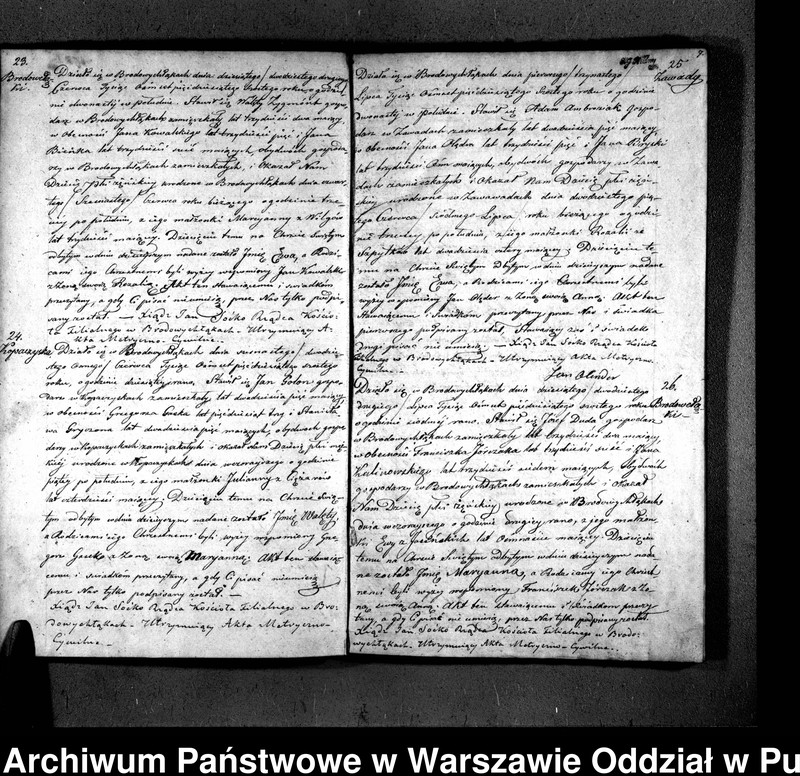 23.
Brodowełąki
Działo się w Brodowychłąkach dnia dziesiątego / dwudziestego drugiego
Czerwca Tysiąc Ośmset pięćdziesiątego szóstego roku, o godzinie
dwunastej w południe. Stawił się Walenty Zygmunt gospodarz
w Brodowychłąkach zamieszkały lat trzydzieści dwa mający,
w obecności Jana Kowalskiego lat trzydzieści pięć i Jana
lat trzydzieści sześć mających, obydwóch gospodarzy
w Brodowychłąkach zamieszkałych, i okazał Nam
Dziecię płci urodzone w Brodowychłąkach dnia
Czerwca roku bieżącego o godzinie
po południu, z jego małżonki Maryanny z
lat trzydzieści mającej. Dziecięciu temu na Chrzcie Świętym
odbytym w dniu dzisiejszym nadane zostało Imię Ewa, a Rodzicami
jego Chrzestnemi byli wyżej wspomniony Jan Kowalski
z Rozalią. Akt ten stawiającemu i świadkom
przeczytany, a gdy Ci pisać nieumieją, przez Nas tylko podpisany
został. — Xiądz Jan Sośko Rządca Kościoła
Filialnego w Brodowychłąkach. Utrzymujący
Akta Metryczno-Cywilne.
24.
Kopaczyska
Działo się w Brodowychłąkach dnia szesnastego / dwudziestego
ósmego / Czerwca Tysiąc Ośmset pięćdziesiątego szóstego
roku, o godzinie dziesiątej rano, Stawił się Jan Golon gospodarz
w Kopaczyskach zamieszkały lat dwadzieścia pięć mający
w obecności Grzegorza lat pięćdziesiąt trzy i Stanisława
lat dwadzieścia pięć mających, obydwóch gospodarzy,
w Kopaczyskach zamieszkałych i okazał Nam Dziecię płci męzkiej
urodzone w Kopaczyskach dnia wczorajszego o godzinie
piątej po południu, z jego małżonki Julianny z
lat czterdzieści mającej; Dziecięciu temu na Chrzcie Świętym
odbytym w dniu dzisiejszym nadane zostało Imię Walenty,
a Rodzicami jego Chrzestnemi byli wyżej wspomniony Grzegorz
z Żoną swoją Maryanną: Akt ten stawiającemu
i świadkom przeczytany, a gdy Ci pisać nieumieją
przez Nas tylko podpisany został. —
Xiądz Jan Sośko Rządca Kościoła Filialnego w Brodowychłąkach.
Utrzymujący Akta Metryczno-
Cywilne. —
7.
25
Zawady
Działo się w Brodowychłąkach dnia pierwszego / trzynastego
Lipca Tysiąc Ośmset pięćdziesiątego szóstego roku o godzinie
dwunastej w południe. Stawił się Adam Ambroziak Gospodarz
w Zawadach zamieszkały lat dwadzieścia pięć mający
w obecności Jana Olędra lat trzydzieści pięć i Jana
lat trzydzieści ośm mających, obydwóch gospodarzy w Zawadach
zamieszkałych i Okazał Nam Dziecię płci
urodzone w Zawadach dnia dwudziestego piątego
Czerwca / siódmego Lipca, roku bieżącego o godzinie
po południu, z jego małżonki Rozalii ze
lat dwadzieścia cztery mającej; Dziecięciu temu
na Chrzcie Świętym Odbytym w dniu dzisiejszym nadane
zostało Imię Ewa, a Rodzicami jego Chrzestnemi byli
wyżej wspomniony Jan Olęder z Żoną swoją Anną. Akt ten
Stawiającemu i Świadkom przeczytany, przez Nas i świadka
pierwszego podpisany został, Stawający zaś i świadek
drugi pisać nie umieją. — Xiądz Jan Sośko Rządca Kościoła
Filialnego w Brodowychłąkach. — Utrzymujący Akta Metryczno-
Cywilne. —
Jan Olender
26.
Brodowełąki
Działo się w Brodowychłąkach dnia dziesiątego / dwudziestego
drugiego / Lipca Tysiąc Ośmset pięćdziesiątego szóstego roku
o godzinie siódmej rano. Stawił się Józef Duda gospodarz
w Brodowychłąkach zamieszkały lat trzydzieści dwa mający,
w Obecności Franciszka lat trzydzieści sześć i Jana
lat trzydzieści siedem mających, obydwóch
gospodarzy w Brodowychłąkach zamieszkałych i Okazał
Nam Dziecię płci urodzone w Brodowychłąkach
dnia wczorajszego o godzinie drugiej rano, z jego małżonki
Ewy z lat Ośmnaście mającej Dziecięciu
temu na Chrzcie Świętym Odbytym w dniu dzisiejszym nadane
zostało Imię Maryanna, a Rodzicami jego Chrzestnemi
byli wyżej wspomniony Franciszek z Żoną
swoją Anną. Akt ten Stawiającemu i Świadkom przeczytany,
a gdy Ci pisać nie umieją, przez Nas tylko podpisany został.
Xiądz Jan Sośko Rządca Kościoła Filialnego w Brodowychłąkach.
Utrzymujący Akta Metryczno-Cywilne. —
Archiwum Państwowe w Warszawie Oddział w Pu